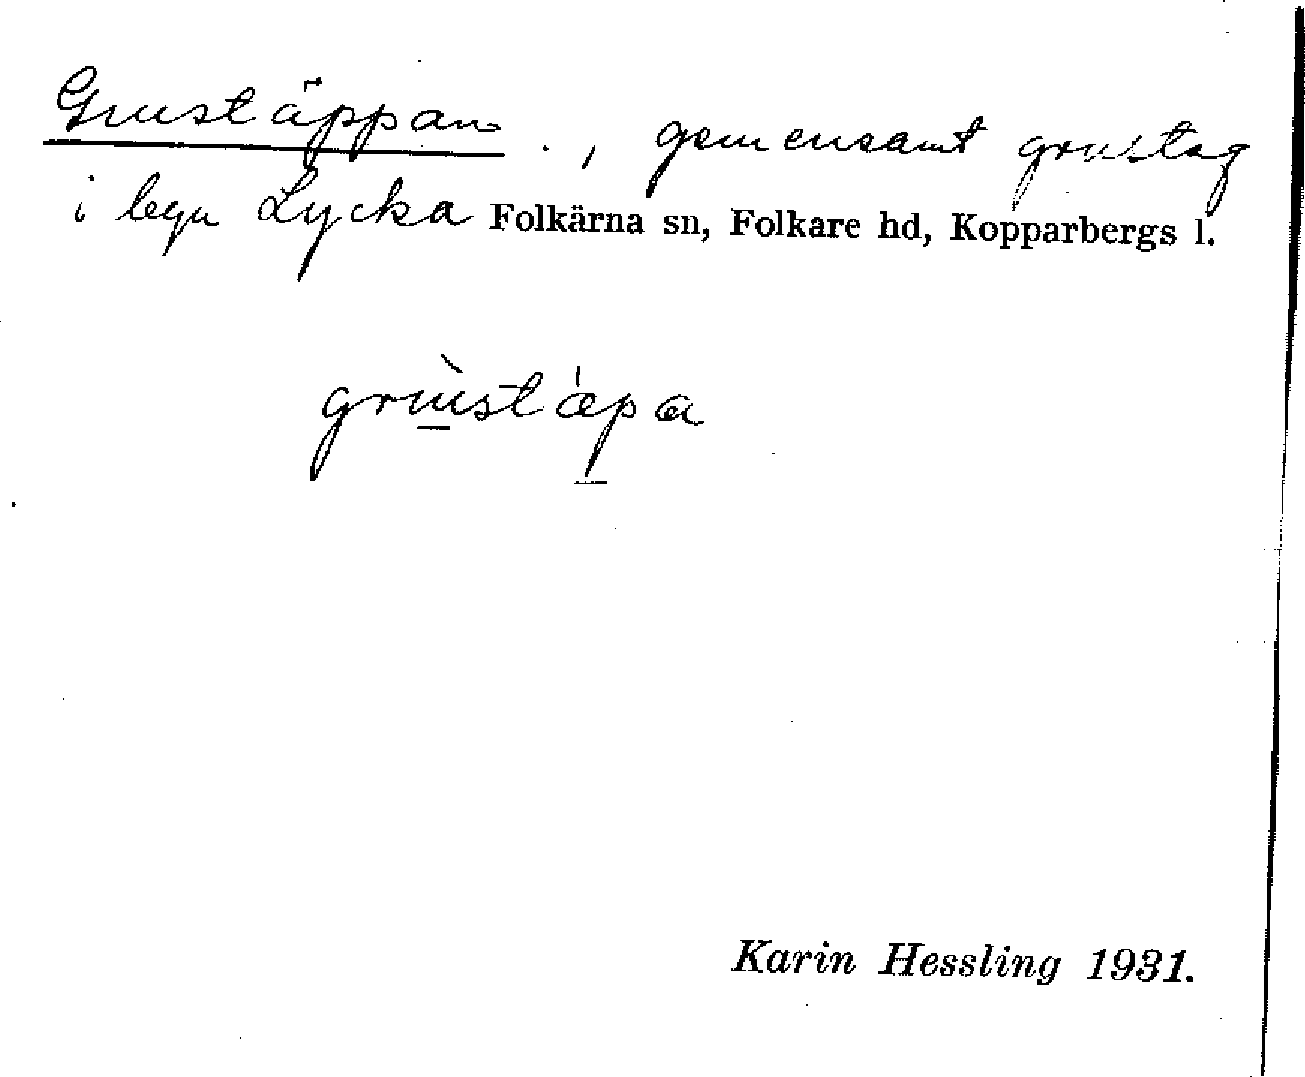 Grustäppan ., gemensamt grustag
i byn Lycka Folkärna sn, Folkare hd, Kopparbergs l.
grùstæ̀pa
Karin Hessling 1931.